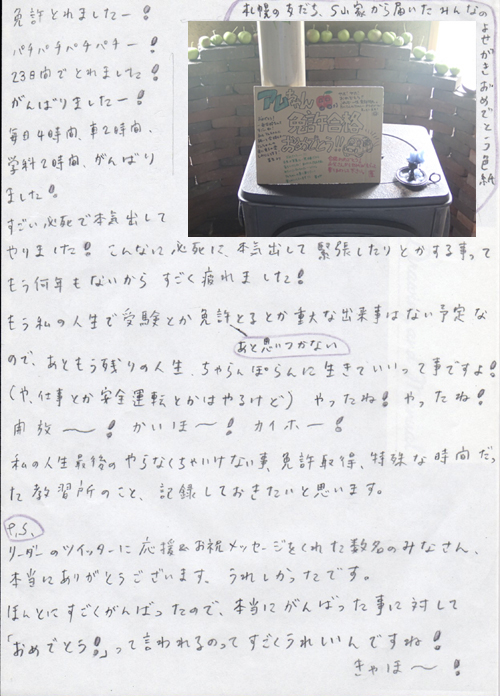 免許とれましたー!
パチパチパチパチー!
23日間でとれました!
がんばりましたー!
毎日4時間、車2時間、
学科2時間、がんばり
ました!
すごい必死で本気出して
やりました! こんなに必死に、本気出して 緊張したりとかする事って
もう何年もないから すごく疲れました!
もう私の人生で受験とか免許とるとか重大な出来事はない予定な
あと思いつかない
ので、あともう残りの人生、ちゃらんぽらんに生きていいって事ですよ!
(や、仕事とか安全運転とかはやるけど) やったね! やったね!
開放〜! かいほ〜! カイホー!
私の人生最後のやらなくちゃいけない事、免許取得、特殊な時間だっ
た教習所のこと、記録しておきたいと思います。
P.S.
リーダーのツイッターに応援&お祝メッセージをくれた数名のみなさん、
本当にありがとうございます、うれしかったです。
ほんとにすごくがんばったので、本当にがんばった事に対して
「おめでとう!」って言われるのってすごくうれしいんですね!
きゃほ〜!
札幌のすだち、S山家から届いたみんなの
よせがきおめでとう色紙
アレちゃん
免許合格
おめでとう!!